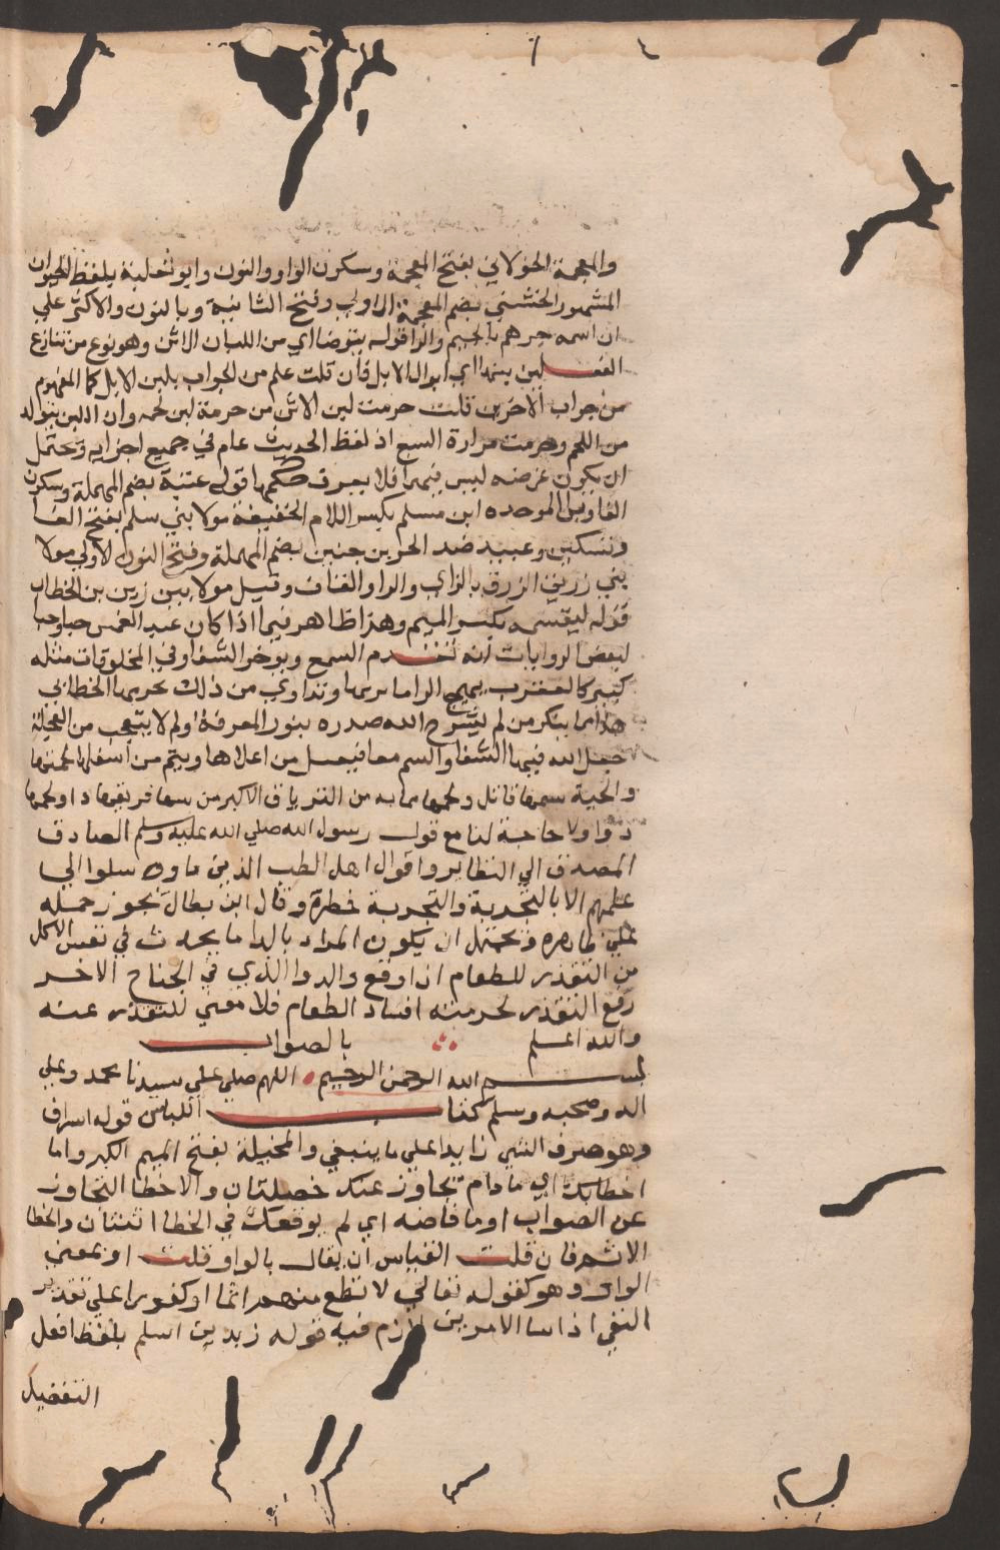 والمعجمة الخولاني بفتح المعجمة وسكون الواو والنون وابو ثعلبة بلفظ الحيوان
المشهور الخشني بضم المعجمة الاولى وفتح الثانية وبالنون والاكثر علي
ان اسمه جرهم بالجيم والراقوله يتوضا اي من اللبان الاتن وهو نوع من تنازع
الفعــلين بينها اي ابوال الابل فان قلت علم من الجواب بلبن الابل كما المفهوم
من جواب الاخرين قلت حرمت لبن الاتن من حرمة لبن لحمه وان اللبن يتولد
من اللحم وحرمت مرارة السبع اذ لفظ الحديث عام في جميع اجزايه ويحتمل
ان يكون غرضه ليس فيهما فلا يعرف حكمها قوله عتبة بضم المهملة وسكون
الفاوقبل الموحده ابن مسلم بكسر اللام الخفيفة مولا بني سلم بفتح الفا
وتسكين وعبيد ضد الحر بن حنين بضم المهملة وفتح النون الاولي مولا
بني زريق الزرق بالزاي والراو القاف وقيل مولا بين زيد بن الخطاب
قوله ليقسه بكسر الميم وهذا ظاهر فيما اذا كان عند الغمس حيا وجا
لبعض الروايات انه تقــدم السم ويوخر الشفا وفي المخلوقات مثله
كثير كالعقرب يهيج الداما برها وتداوي من ذلك بحرمها الخطابي
هذا مما ينكر من لم يشرح الله صدره بنور المعرفة اولم لا يتعجب من النحلة
جعل الله فيها الشفا والسم معا فيعسل من اعلاها ويتم من اسفلها بحمتها
والحية سمها قاتل ولحمها مما به من الترياق الاكبر من سمها فريقها دا ولحمها
دوا ولا حاجة لنا مع قول رسول الله صلي الله عليه وسلم الصادق
المصدق الي النظاير واقوال اهل الطب الذين ما وصلوا الي
علمهم الا بالتجربة والتجربة خطرة وقال ابن بطال يجوز حمله
علي ظاهره ويحتمل ان يكون المراد بالدا ما يحدث في نفس الاكل
من التقذر للطعام اذا وقع والدوا الذي في الجناح الاخر
رفع التقذر لحرمته افساد الطعام فلا معني للتقذر عنه
والله اعلم بالصواب
بســـم الله الرحمن الرحيم اللهم صلي علي سيدنا محمد وعلي
اله وصحبه وسلم كتاب اللباس قوله اسراف
وهو صرف الشي زايدا علي ما ينبغي والمخيلة بفتح الميم الكبر واما
اخطاتك اي ما دام تجاوز عنك خصلتان والاخطا التجاوز
عن الصواب او ما نافيه اي لم يوقعك في الخطا اثنتان والخطا
الاثم فان قلت القياس ان يقال بالواو قلت او بمعني
الواو وهو كقوله تعالي لا تطع منهم اثما او كفورا علي تقدير
النفي اذ اسا الامرين لازم فيه قوله زيد بن اسلم بلفظ افعل
التفضيل